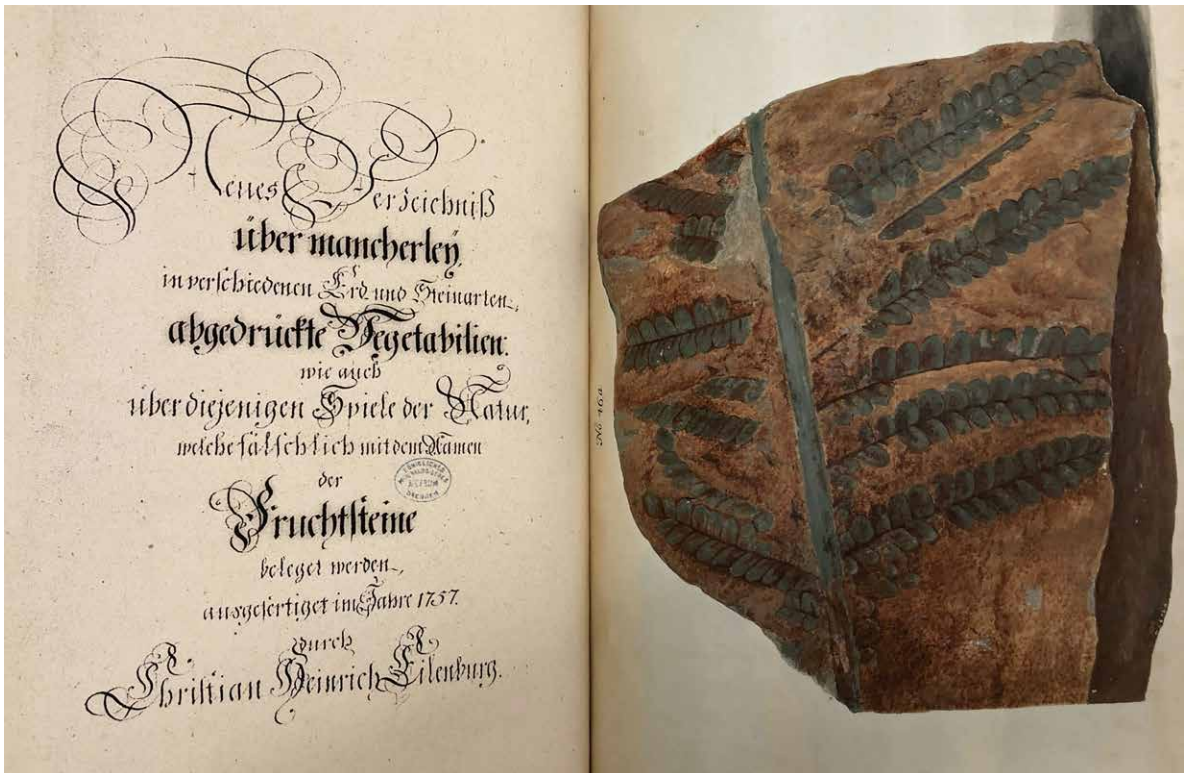 Neues Verzeichniß
über mancherley,
in verschiedenen Erd und Steinarten,
abgedrückte Vegetabilien:
wie auch
über diejenigen Spiele der Natur,
welche fälschlich mit dem Namen
der
Fruchtsteine
beleget werden,
ausgefertiget im Jahre 1757.
durch
Christian Heinrich Eilenburg.
KÖNIGLICHES
MUSEUM
DRESDEN
No 464